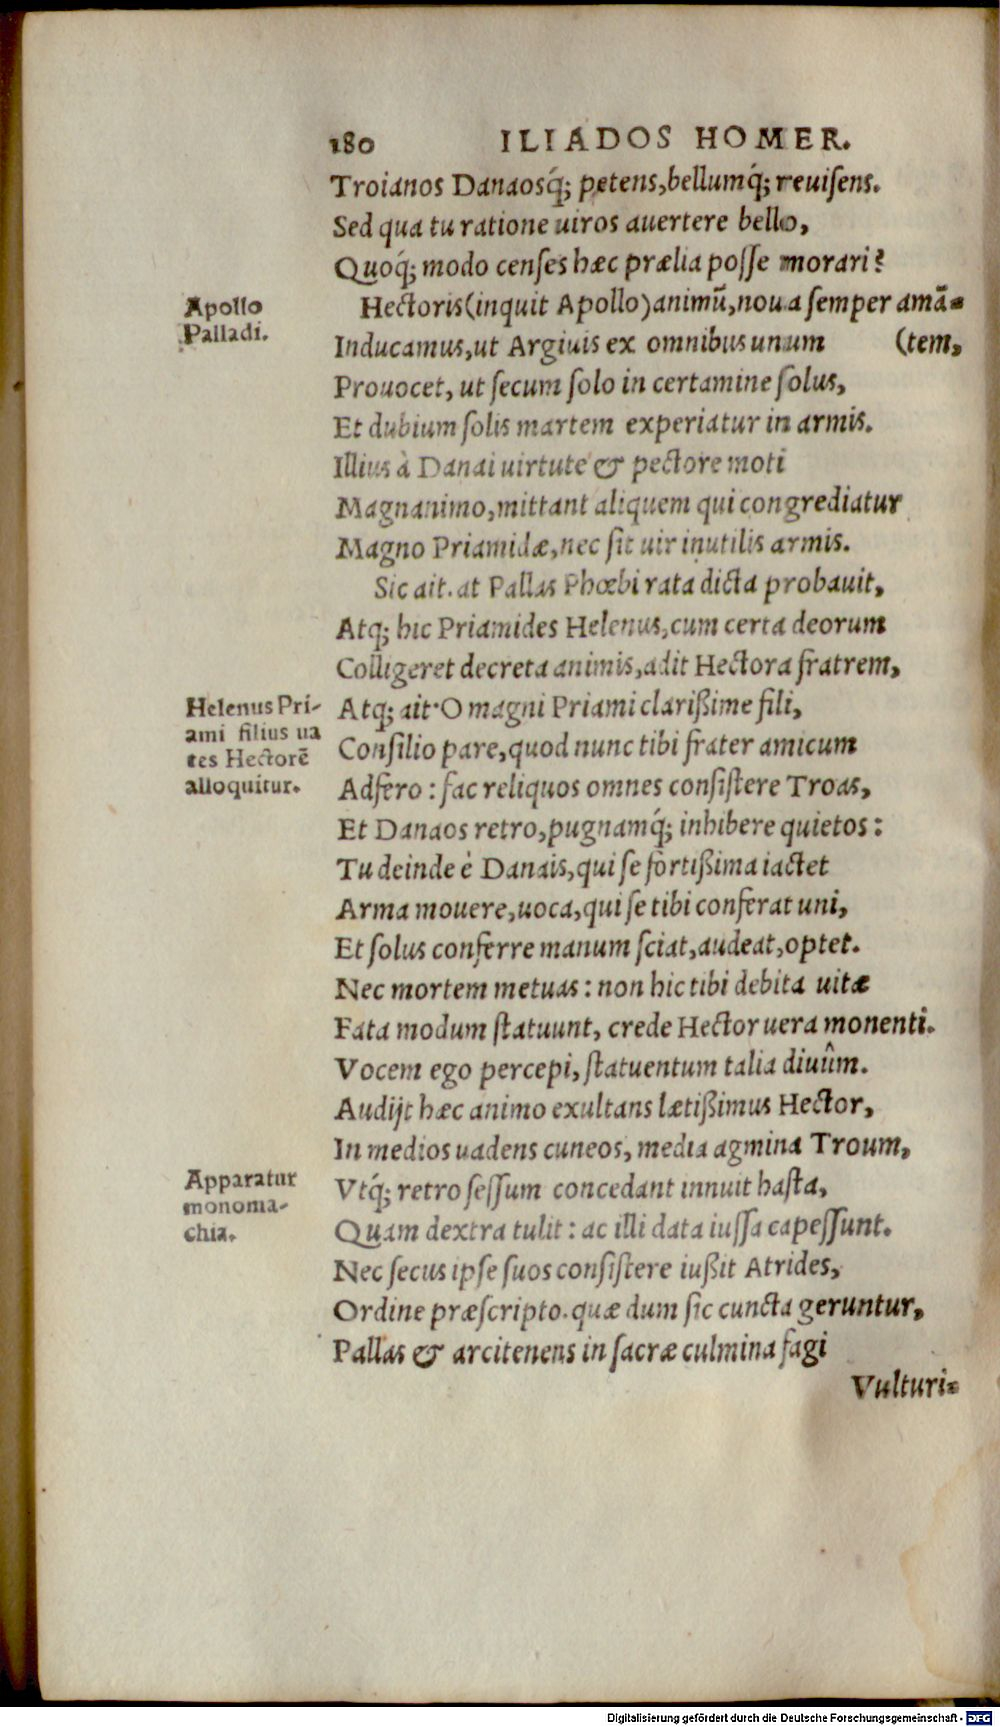 180 ILIADOS HOMER.
Troianos Danaosq́; petens, bellumq́; reuisens.
Sed qua tu ratione uiros auertere bello,
Quoq́; modo censes hæc prælia posse morari?
Apollo
Palladi.
Hectoris (inquit Apollo) animũ, noua semper amã-
Inducamus, ut Argiuis ex omnibus unum (tem,
Prouocet, ut secum solo in certamine solus,
Et dubium solis martem experiatur in armis.
Illius à Danai uirtute & pectore moti
Magnanimo, mittant aliquem qui congrediatur
Magno Priamidæ, nec sit uir inutilis armis.
Sic ait. at Pallas Phœbi rata dicta probauit,
Atq; hic Priamides Helenus, cum certa deorum
Colligeret decreta animis, adit Hectora fratrem,
Helenus Pri-
ami filius ua
tes Hectorẽ
alloquitur.
Atq; ait· O magni Priami clarißime fili,
Consilio pare, quod nunc tibi frater amicum
Adfero: fac reliquos omnes consistere Troas,
Et Danaos retro, pugnamq́; inhibere quietos:
Tu deinde è Danais, qui se fortißima iactet
Arma mouere, uoca, qui se tibi conferat uni,
Et solus conferre manum sciat, audeat, optet.
Nec mortem metuas: non hic tibi debita uitæ
Fata modum statuunt, crede Hector uera monenti.
Vocem ego percepi, statuentum talia diuûm.
Audijt hæc animo exultans lætißimus Hector,
In medios uadens cuneos, media agmina Troum,
Apparatur
monoma-
chia.
Vtq́; retro sessum concedant innuit hasta,
Quam dextra tulit: ac illi data iussa capessunt.
Nec secus ipse suos consistere iußit Atrides,
Ordine præscripto. quæ dum sic cuncta geruntur,
Pallas & arcitenens in sacræ culmina fagi
Vulturi-
Digitalisierung gefördert durch die Deutsche Forschungsgemeinschaft - DFG